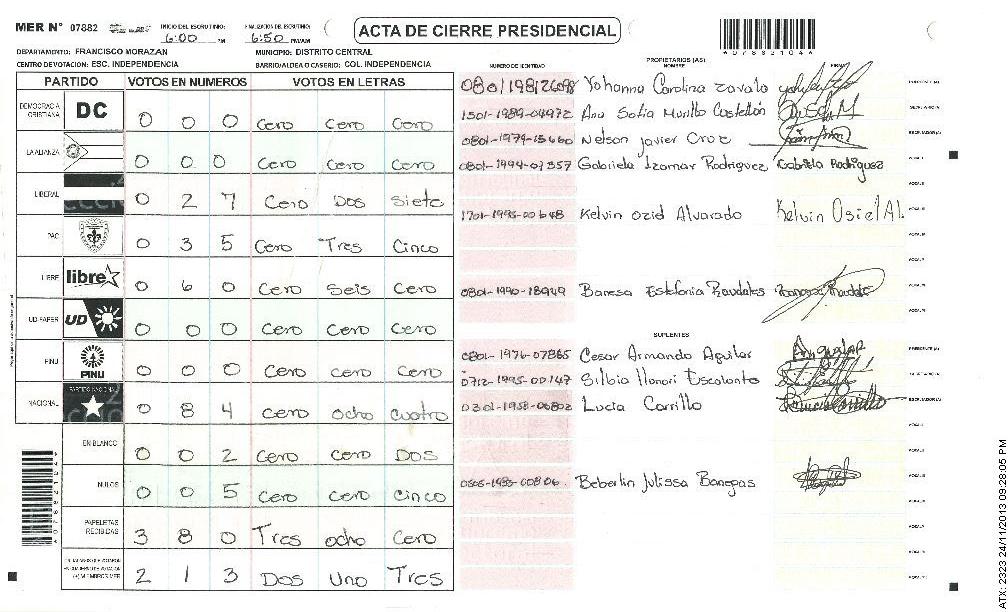 MER Nº 07882
INICIO DEL ESCRUTINIO: 6:00 PM
FINALIZACION DEL ESCRUTINIO: 6:50 PM/AM
ACTA DE CIERRE PRESIDENCIAL
DEPARTAMENTO: FRANCISCO MORAZAN MUNICIPIO: DISTRITO CENTRAL
CENTRO DE VOTACION: ESC. INDEPENDENCIA BARRIO/ALDEA O CASERIO: COL. INDEPENDENCIA
PARTIDO VOTOS EN NUMEROS VOTOS EN LETRAS
DEMOCRACIA CRISTIANA DC 0 0 0 Cero Cero Cero
LA ALIANZA 0 0 0 Cero Cero Cero
LIBERAL 0 2 7 Cero Dos Siete
PAC 0 3 5 Cero Tres Cinco
LIBRE libre 0 6 0 Cero Seis Cero
UD-FAPER UD 0 0 0 Cero Cero Cero
PINU PINU 0 0 0 Cero Cero Cero
NACIONAL PARTIDO NACIONAL 0 8 4 Cero ocho cuatro
EN BLANCO 0 0 2 Cero Cero Dos
NULOS 0 0 5 Cero Cero Cinco
PAPELETAS RECIBIDAS 3 8 0 Tres ocho Cero
2 1 3 Dos Uno Tres
NUMERO DE IDENTIDAD PROPIETARIOS (AS) NOMBRE FIRMA
Yohanna Carolina Zavala PRESIDENTE (A)
1501-1989-04972 Ana Sofia Murillo Castellón SECRETARIO (A)
0801-1979-15660 Nelson Javier Cruz ESCRUTADOR (A)
0801-1994-07357 Gabriela Izamar Rodriguez Gabriela Rodriguez VOCAL I
1701-1995-00648 Kelvin Ozid Alvarado Kelvin Osiel Al.
0801-1990-18949 Banesa Estefania Raudales
SUPLENTES
0801-1976-07865 Cesar Armando Aguilar PRESIDENTE (A)
0712-1995-00147 Silbia Honori Escalante SECRETARIO (A)
0301-1958-00802 Lucia Carrillo ESCRUTADOR (A)
Beberlin Julissa Banegas
ATX: 2323 24/11/2013 09:28:05 PM